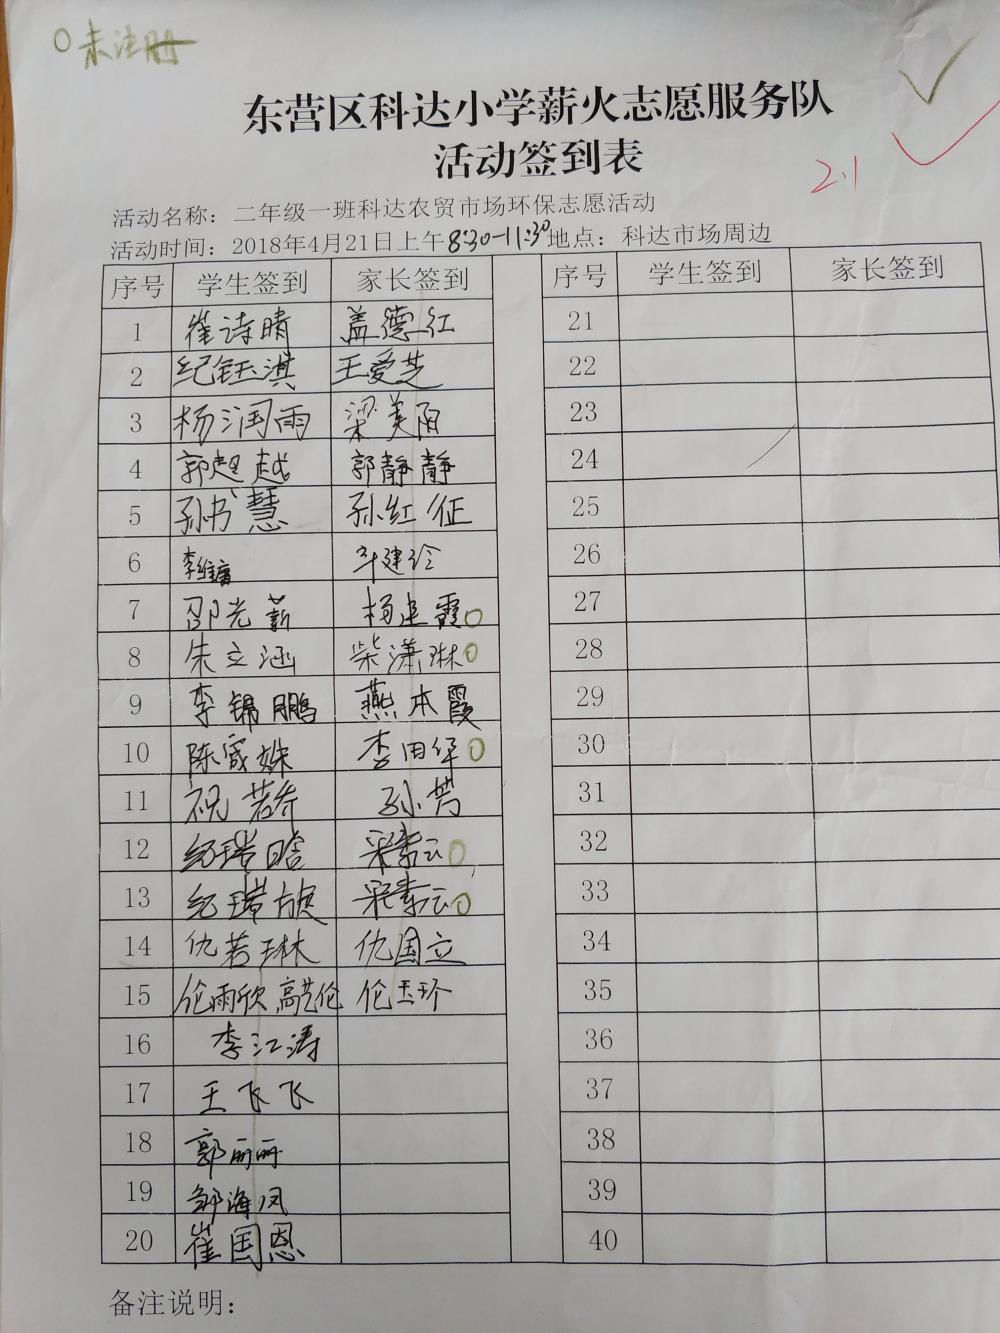 ○未注册
东营区科达小学薪火志愿服务队
活动签到表
2.1
活动名称：二年级一班科达农贸市场环保志愿活动
活动时间：2018年4月21日上午8:30-11:30地点：科达市场周边
序号 学生签到 家长签到 序号 学生签到 家长签到
1 崔诗晴 盖德红 21
2 纪钰淇 王爱芝 22
3 杨润雨 梁美 23
4 郭超越 郭静静 24
5 孙书慧 孙红征 25
6 李维 建玲 26
7 邵光薪 杨建霞○ 27
8 朱立涵 柴潇琳○ 28
9 李锦鹏 燕本霞 29
10 陈宬姝 李田华○ 30
11 祝若乔 孙芳 31
12 纪璋晗 素云○ 32
13 纪璋旗 素云○ 33
14 仇若琳 仇国立 34
15 伦雨欣 高艺伦 伦玉玠 35
16 李江涛 36
17 王飞飞 37
18 郭丽丽 38
19 邹海凤 39
20 崔国恩 40
备注说明：